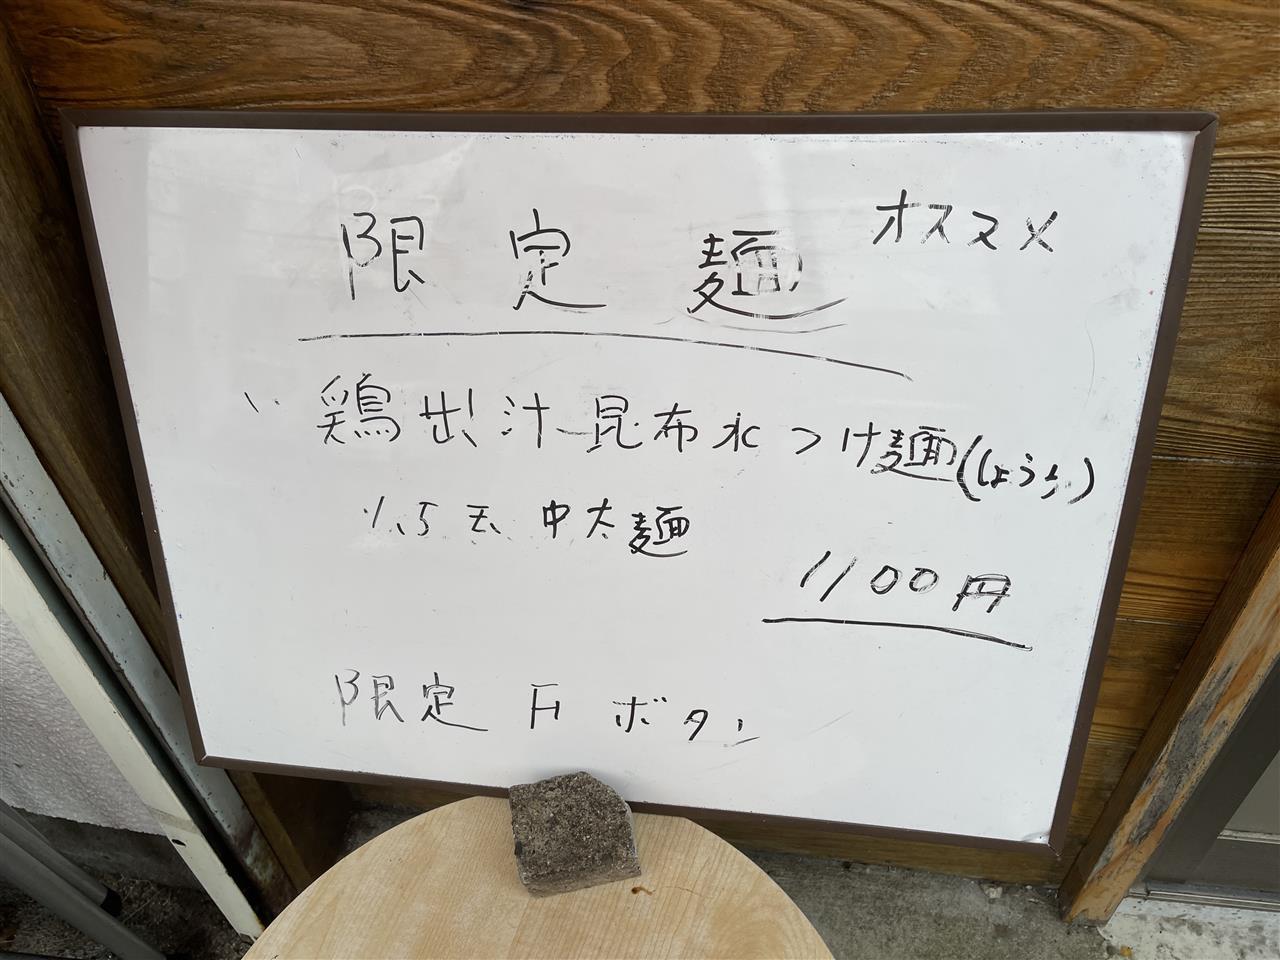 限定麺 オススメ
鶏出汁昆布水つけ麺(しょうゆ)
1.5玉 中太麺
1100円
限定 下 ボタン